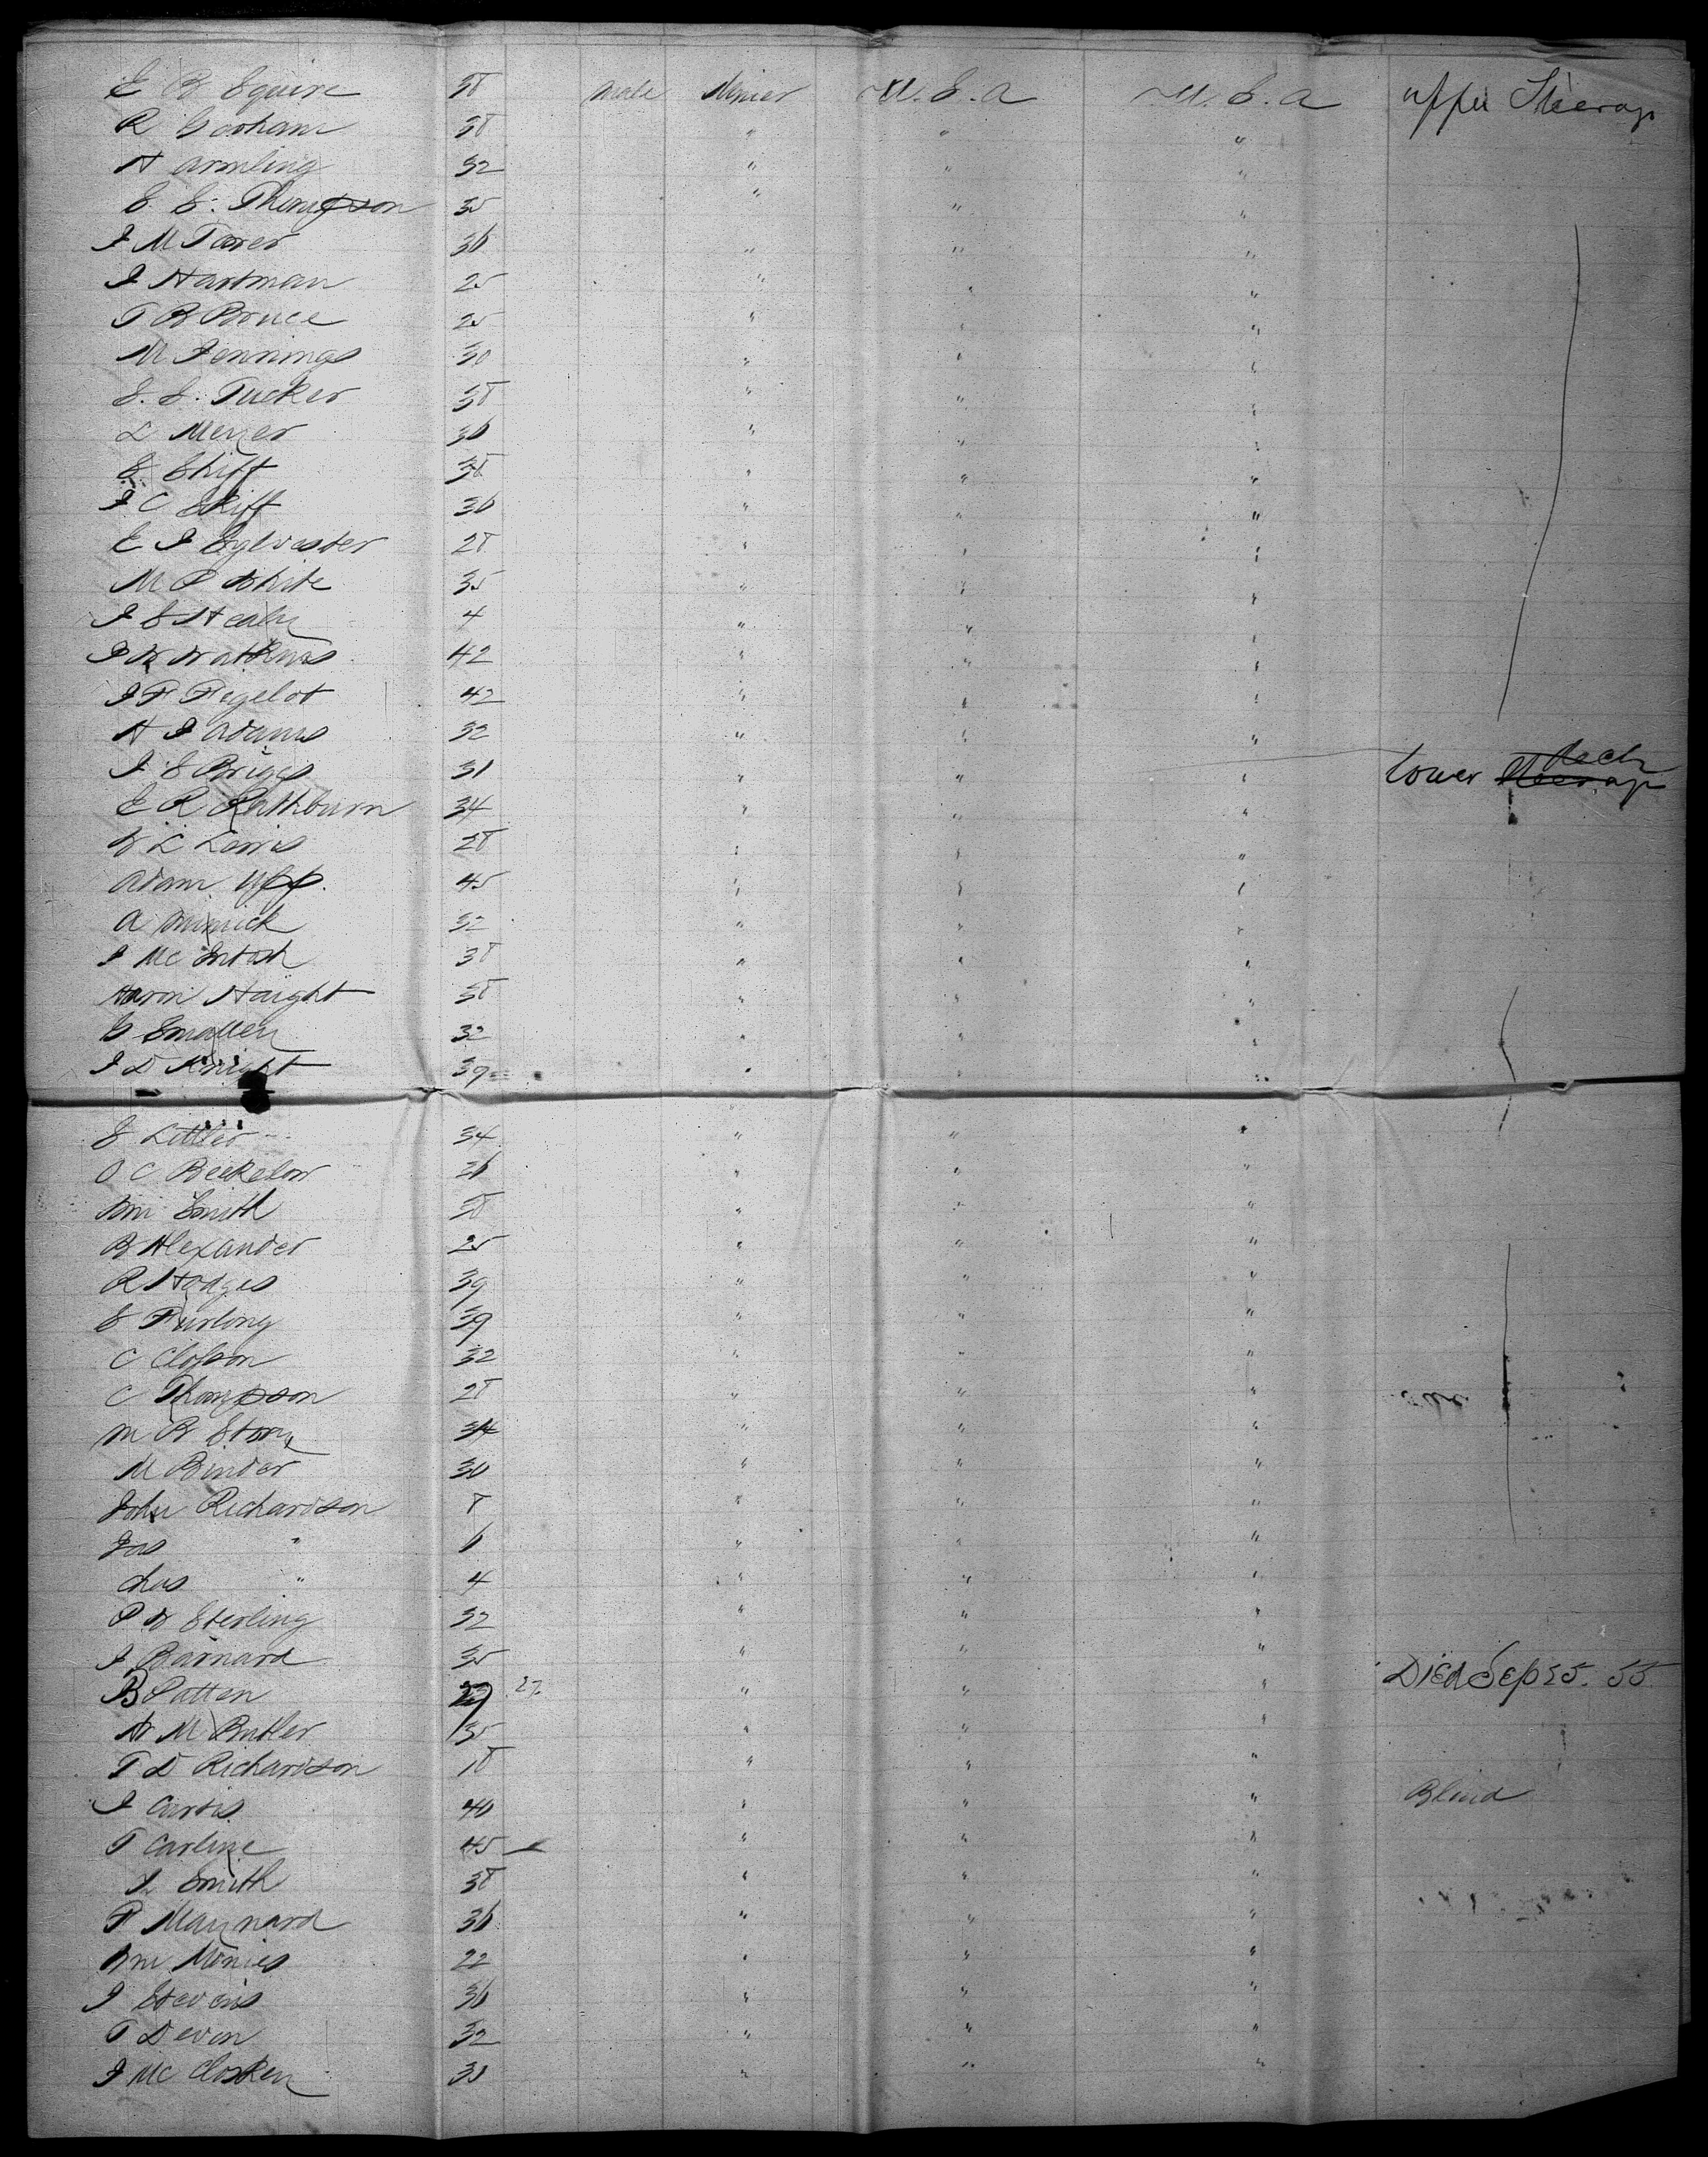 E B Squire 38 male Miner U.S.A U.S.A upper Steerage
R Gorham 38 " " "
H Armling 32 " " "
S. S. Thompson 35 " " "
J M Tarer 36 " " "
J Hartman 25 " " "
T B Bruce 25 " " "
M Jennings 30 " " "
S. S. Tucker 38 " " "
L Meyer 36 " " "
S Shift 38 " " "
J C Skiff 36 " " "
E J Sylvester 28 " " "
M P White 35 " " "
J S Healy 4 " " "
J W Watkins 42 " " "
J F Figelot 42 " " "
H J Adams 32 " " "
J S Briggs 31 " " " lower Deck
E R Rathburn 34 " " "
W L Lewis 28 " " "
Adam Upp. 45 " " "
A Mimick 32 " " "
J McIntosh 38 " " "
Aaron Haight 38 " " "
G Smalley 32 " " "
J D Knight 39 " " "
S Littler 34 " " "
O C Beckelow 26 " " "
Wm Smith 38 " " "
B Alexander 25 " " "
R Hodges 39 " " "
S Furlong 39 " " "
C Closson 32 " " "
C Thompson 28 " " "
M B Stony 34 " " "
M Binder 30 " " "
John Richardson 8 " " "
Jas " 6 " " "
Chas " 4 " " "
P W Sterling 32 " " "
J Barnard 35 " " "
B Patten 27 27 " " " Died Sep 25. 55
W M Butler 35 " " "
T D Richardson 18 " " "
J Curtis 40 " " " Blind
T Carline 45 " " "
Smith 38 " " "
P Maynard 36 " " "
Wm Monies 22 " " "
J Stevens 36 " " "
T Devon 32 " " "
J McCloskey 31 " " "